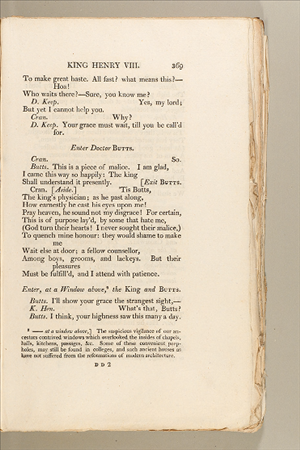 KING HENRY VIII. 269
To make great haste. All fast? what means this?—
Hoa!
Who waits there?—Sure, you know me?
D. Keep. Yes, my lord;
But yet I cannot help you.
Cran. Why?
D. Keep. Your grace must wait, till you be call'd
for.
Enter Doctor BUTTS.
Cran. So.
Butts. This is a piece of malice. I am glad,
I came this way so happily: The king
Shall understand it presently. [Exit BUTTS.
Cran. [Aside.] 'Tis Butts,
The king's physician; as he past along,
How earnestly he cast his eyes upon me!
Pray heaven, he sound not my disgrace! For certain,
This is of purpose lay'd, by some that hate me,
(God turn their hearts! I never sought their malice,)
To quench mine honour: they would shame to make
me
Wait else at door; a fellow counsellor,
Among boys, grooms, and lackeys. But their
pleasures
Must be fulfill'd, and I attend with patience.
Enter, at a Window above, the King and BUTTS.
Butts. I'll show your grace the strangest sight,—
K. Hen. What's that, Butts?
Butts. I think, your highness saw this many a day.
—— at a window above,] The suspicious vigilance of our an-
cestors contrived windows which overlooked the insides of chapels,
halls, kitchens, passages, &c. Some of these convenient peep-
holes, may still be found in colleges, and such ancient houses as
have not suffered from the reformations of modern architecture.
D D 2